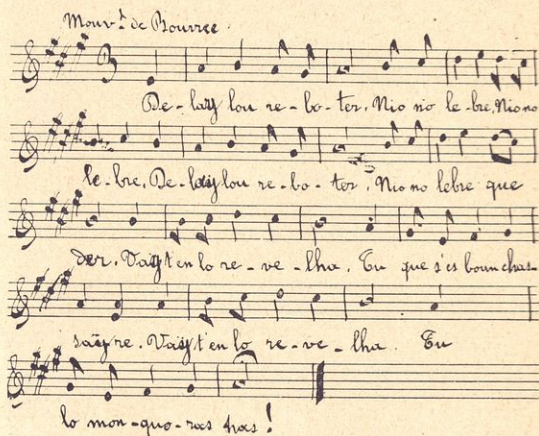 Mouv.t de Bourree.
3
De-lay lou re-bo-ter, Nio no le-bre, Nio no
le-bre, De-lay lou re-bo-ter, Nio no lebre que
der. Vay t'en lo re-ve-lha, Tu que s'es boun chas-
sayre. Vay t'en lo re-ve-lha. Tu
lo mon-quo-ras pas!